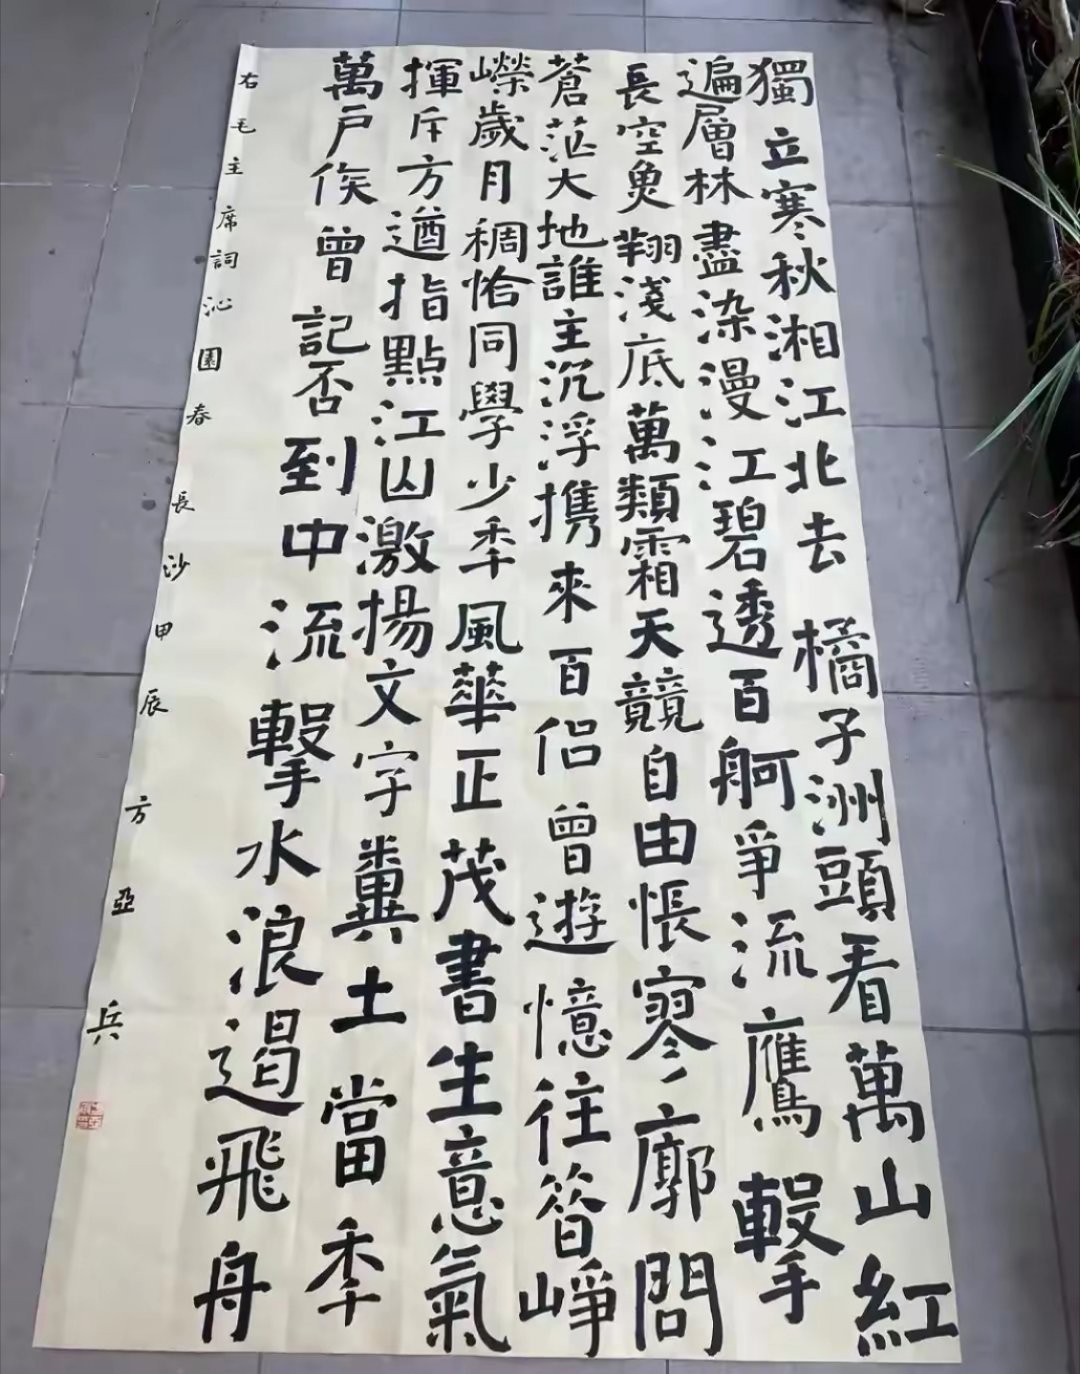 獨立寒秋湘江北去橘子洲頭看萬山紅
遍層林盡染漫江碧透百舸爭流鷹擊
長空魚翔淺底萬類霜天競自由悵寥廓問
蒼茫大地誰主沉浮攜來百侣曾遊憶往昔崢
嶸歲月稠恰同學少秊風華正茂書生意氣
揮斥方遒指點江山激揚文字糞土當秊
萬戶侯曾記否到中流擊水浪遏飛舟
右毛主席詞沁園春長沙甲辰方亞兵